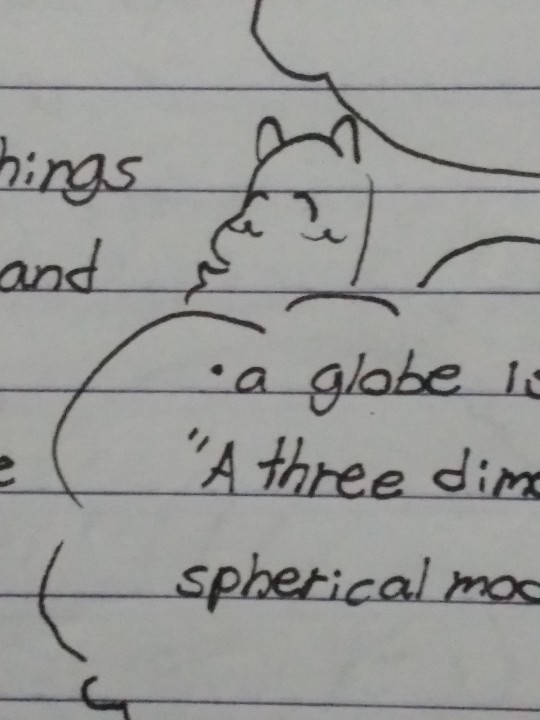 hings
and
•a globe is
e
"A three dime
spherical mod